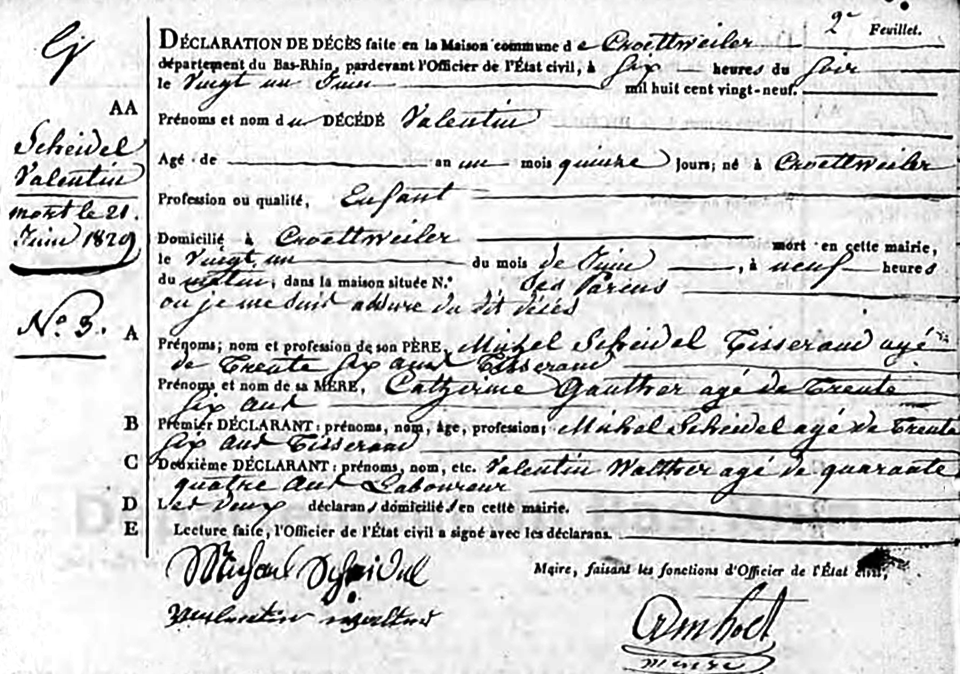 2e Feuillet.
DÉCLARATION DE DÉCÈS faite en la Maison commune de Croettweiler
département du Bas-Rhin, pardevant l'Officier de l'État civil, à Six heures du Soir
le Vingt un Juin mil huit cent vingt-neuf.
AA
Prénoms et nom du DÉCÉDÉ Valentin
Scheidel
Valentin
mort le 21
Juin 1829
Agé de an un mois quinze jours, né à Croettweiler
Profession ou qualité, Enfant
Domicilié à Croettweiler mort en cette mairie,
le Vingt un du mois de Juin, à neuf heures
du matin, dans la maison située N.º des Parens
ou je me suis assure du dit décés
No 3.
A
Prénoms, nom et profession de son PÈRE, Michel Scheidel Tisserand agé
de Trente Six ans Tisserand
Prénoms et nom de sa MÈRE, Catherine Gauther agé de Trente
Six ans
B Premier DÉCLARANT: prénoms, nom, âge, profession, Michel Scheidel agé de Trente
Six ans Tisserand
C Deuxième DÉCLARANT: prénoms, nom, etc. Valentin Walther agé de quarante
quatre ans Laboureur
D Les deux déclarans domiciliés en cette mairie.
E Lecture faite, l'Officier de l'État civil a signé avec les déclarans.
Maire, faisant les fonctions d'Officier de l'État civil,
Michael Scheidel